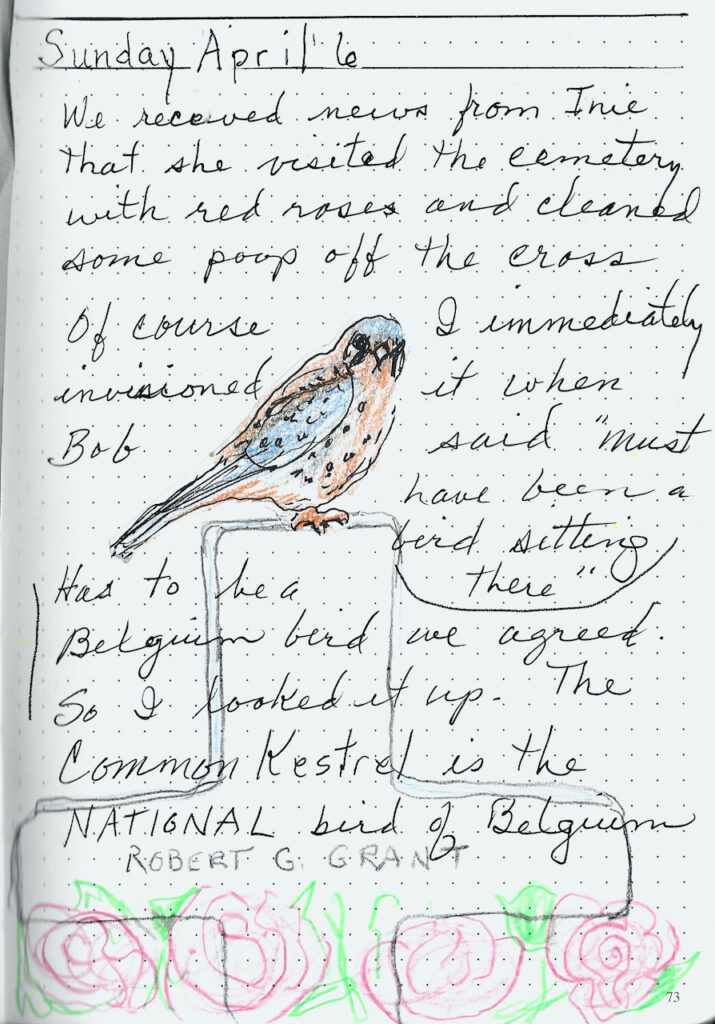 Sunday April 6
We received news from Inie
that she visited the cemetery
with red roses and cleaned
some poop off the cross
Of course I immediately
invisioned it when
Bob said "must
have been a
bird sitting
there"
Has to be a
Belgium bird we agreed.
So I looked it up. The
Common Kestrel is the
NATIONAL bird of Belgium
ROBERT G. GRANT
73